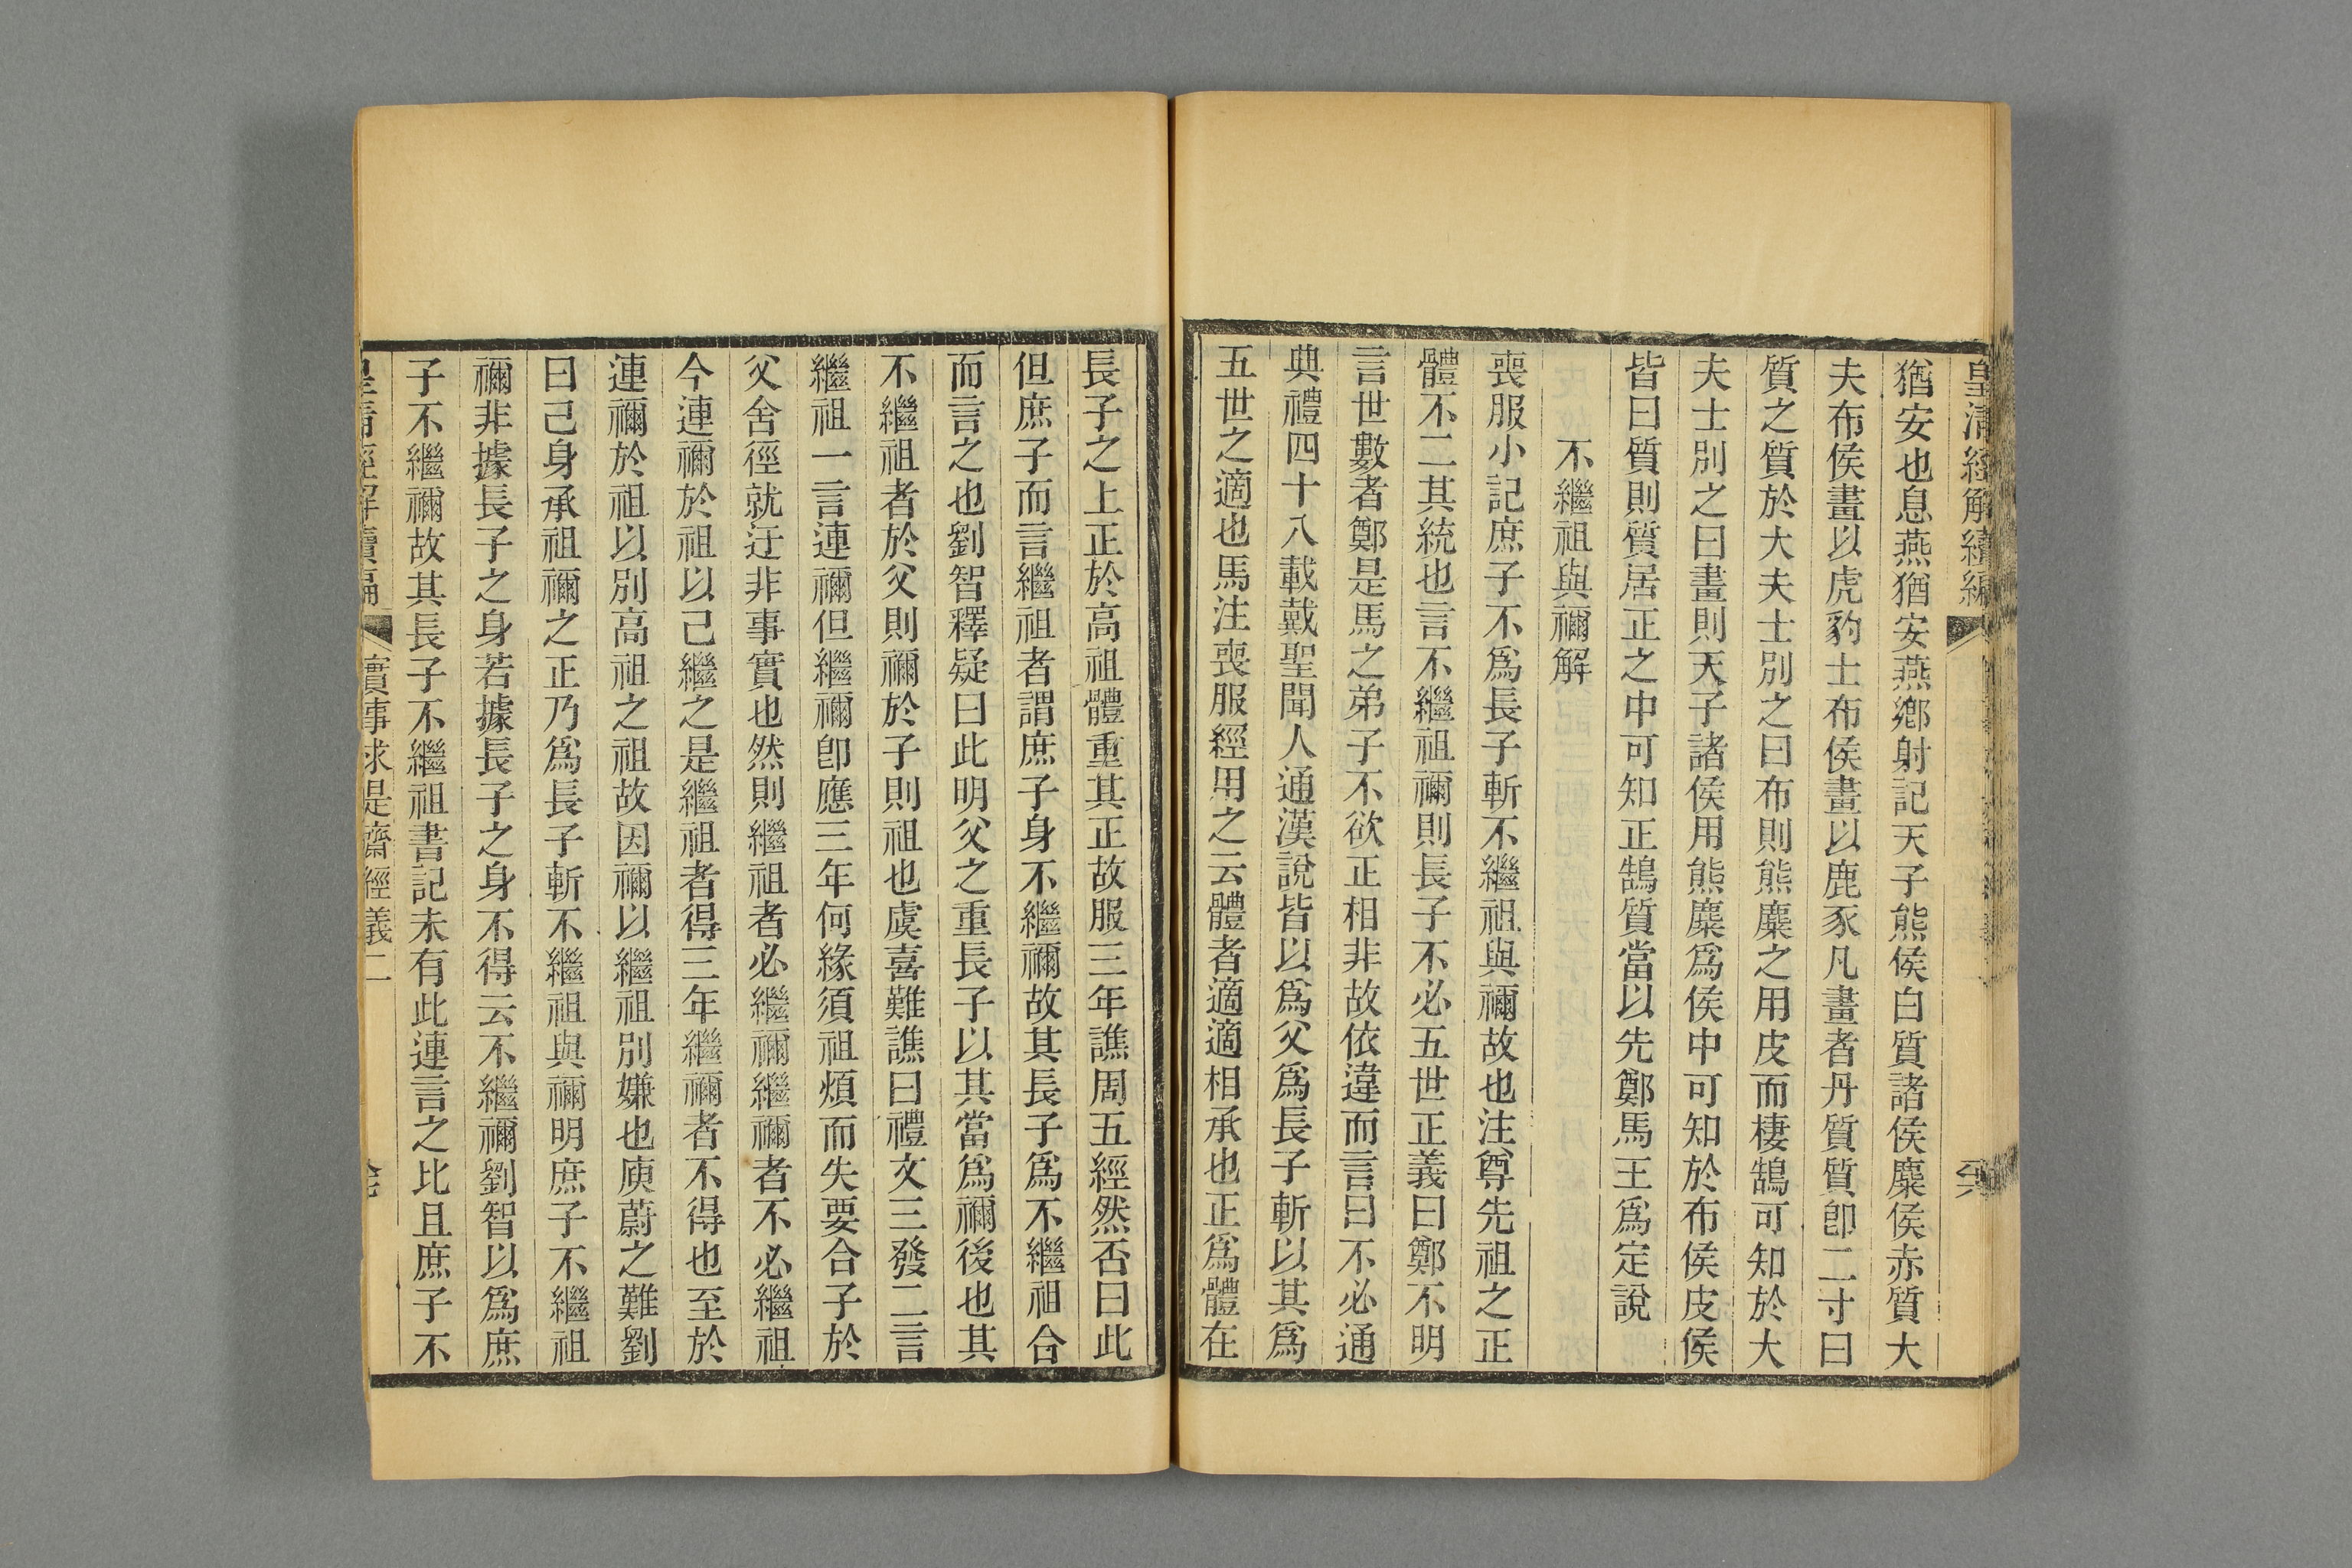 皇清經解續編
猶安也息燕猶安燕鄉射記天子熊侯白質諸侯麋侯赤質大
夫布侯畫以虎豹士布侯畫以鹿豕凡畫者丹質質卽二寸曰
質之質於大夫士別之曰布則熊麋之用皮而棲鵠可知於大
夫士別之曰畫則天子諸侯用熊麋爲侯中可知於布侯皮侯
皆曰質則質居正之中可知正鵠質當以先鄭馬王爲定說
不繼祖與禰解
喪服小記庶子不爲長子斬不繼祖與禰故也注尊先祖之正
體不二其統也言不繼祖禰則長子不必五世正義曰鄭不明
言世數者鄭是馬之弟子不欲正相非故依違而言曰不必通
典禮四十八載戴聖聞人通漢說皆以爲父爲長子斬以其爲
五世之適也馬注喪服經用之云體者適適相承也正爲體在
長子之上正於高祖體重其正故服三年譙周五經然否曰此
但庶子而言繼祖者謂庶子身不繼禰故其長子爲不繼祖合
而言之也劉智釋疑曰此明父之重長子以其當爲禰後也其
不繼祖者於父則禰於子則祖也虞喜難譙曰禮文三發二言
繼祖一言連禰但繼禰卽應三年何緣須祖煩而失要合子於
父舍徑就迂非事實也然則繼祖者必繼禰繼禰者不必繼祖
今連禰於祖以己繼之是繼祖者得三年繼禰者不得也至於
連禰於祖以別高祖之祖故因禰以繼祖別嫌也庾蔚之難劉
曰己身承祖禰之正乃爲長子斬不繼祖與禰明庶子不繼祖
禰非據長子之身若據長子之身不得云不繼禰劉智以爲庶
子不繼禰故其長子不繼祖書記未有此連言之比且庶子不
皇清經解續編 實事求是齋經義二